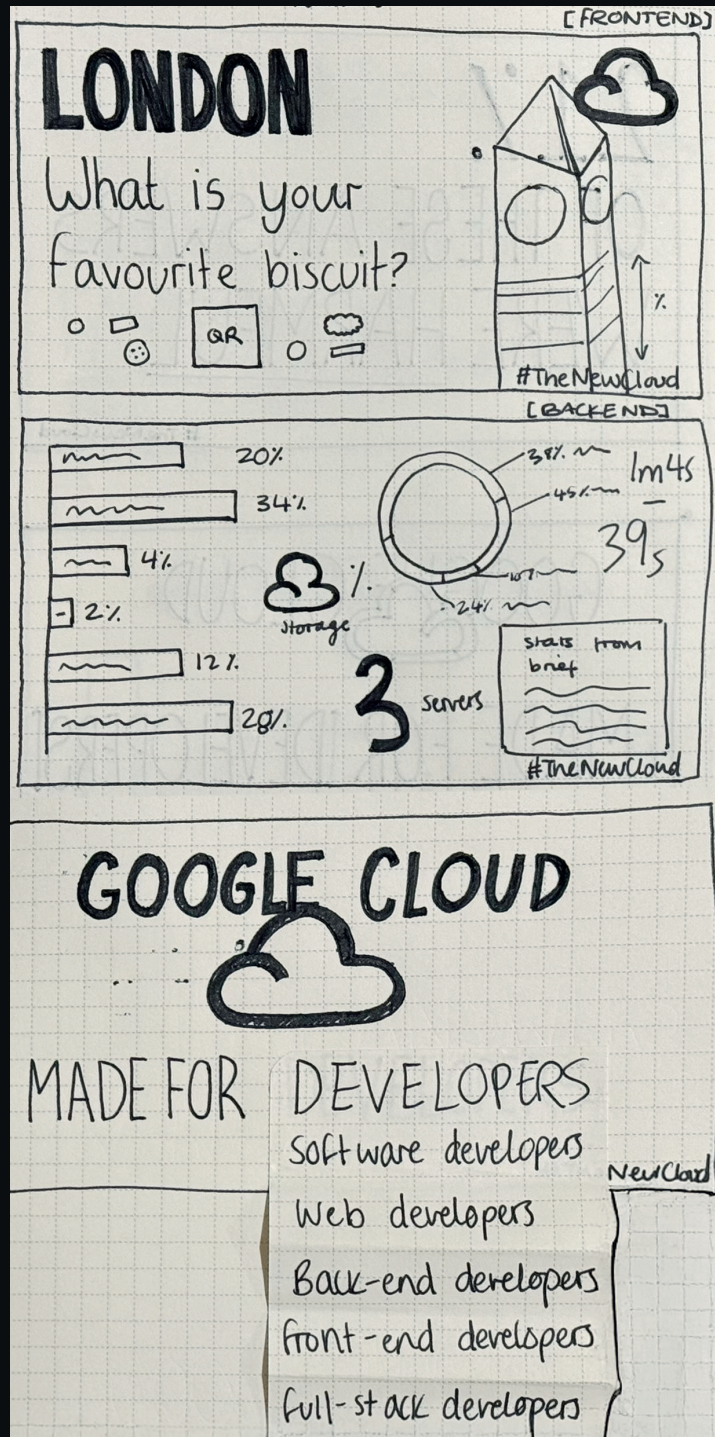 [FRONTEND]
LONDON
What is your
favourite biscuit?
QR
%
#TheNewCloud
[BACKEND]
20%
34%
4%
2%
12%
28%
%
storage
3 servers
38%
45%
10%
24%
1m4s
39s
stats from
brief
#TheNewCloud
GOOGLE CLOUD
MADE FOR DEVELOPERS
Software developers
NewCloud
Web developers
Back-end developers
front-end developers
full-stack developers